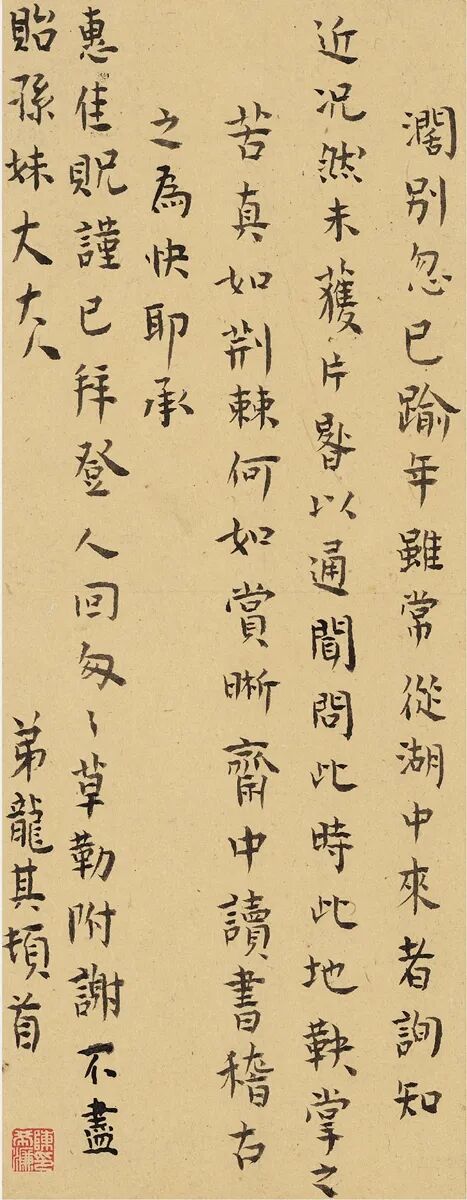 濶別忽已踰年雖常從湖中來者詢知
近况然未獲片晷以通聞問此時此地鞅掌之
苦真如荆棘何如賞晰齋中讀書稽古
之為快耶承
惠佳貺謹已拜登人回匆〻草勒附謝不盡
貽孫妹大大人
弟龍其頓首